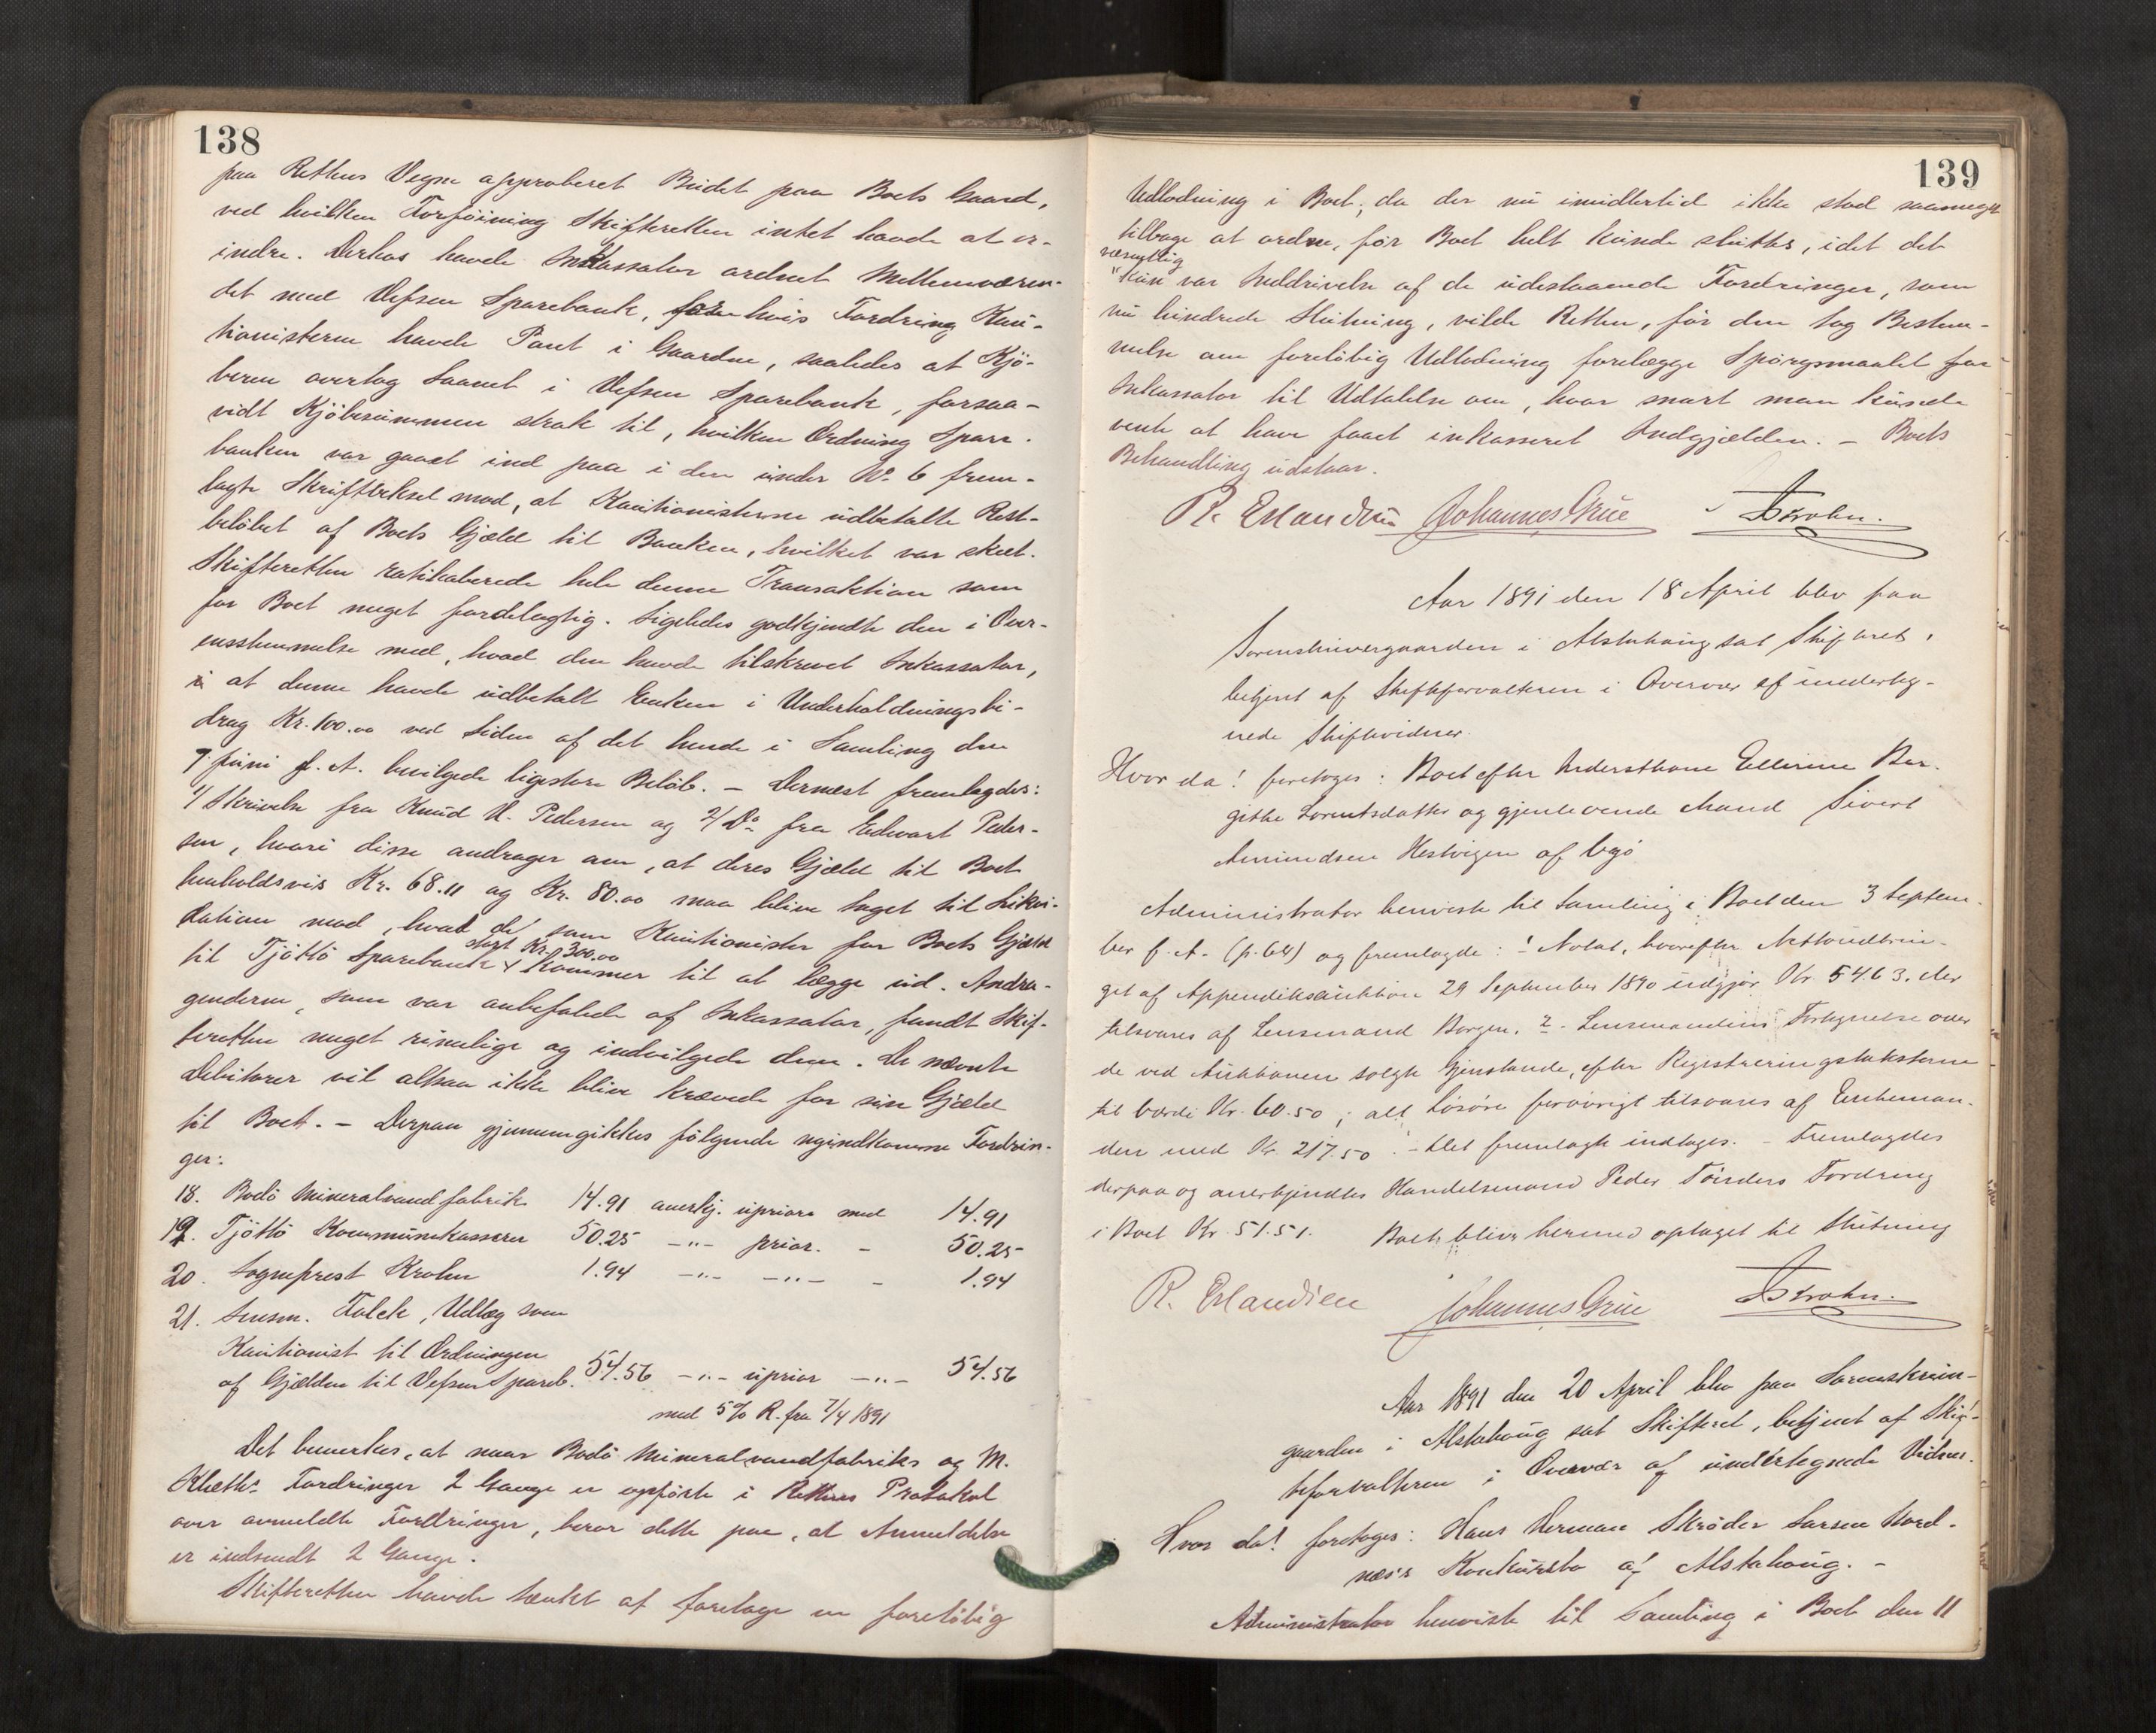 138
paa Rettens Vegne approberet Budet paa Boets Gaard,
ved hvilken Forføining Skifteretten intet havde at er-
indre. Derhos havde Inkassator ordnet Mellemværen-
det med Vefsen Sparebank, for hvis Fordring Kau-
tionisterne havde Pant i Gaarden, saaledes at Kjö-
beren overtog Laanet i Vefsen Sparebank, forsaa-
vidt Kjöbesummen strak til, hvilken Ordning Spare-
banken var gaaet ind paa i den under No 6 frem-
lagte Skriftveksel mod, at Kautionisterne udbetalte Rest-
belöbet af Boets Gjæld til Banken, hvilket var skeet.
Skifteretten ratihaberede hele denne Transaktion som
for Boet meget fordelagtig. Ligeledes godkjendte den i Over-
ensstemmelse med, hvad den havde tilskrevet Inkassator,
at denne havde udbetalt Enken i Underholdningsbi-
drag Kr. 100.00 ved Siden af det hende i Samling den
7 Juni f. A. bevilgede ligestore Belöb. – Dernæst fremlagdes:
1/ Skrivelse fra Knud H. Pedersen og 2/ Do fra Edvart Peder-
sen, hvori disse andrager om, at deres Gjæld til Boet
henholdsvis Kr. 68.11 og Kr. 80.00 maa blive taget til Likvi-
dation mod, hvad de som Kautionister for Boets Gjæld
stort Kr. 300.00
til Tjöttö Sparebank kommer til at lægge ud. Andra-
genderne, som var anbefalede af Inkassator, fandt Skif-
teretten meget rimelige og indvilgede dem. De nævnte
Debitorer vil altsaa ikke blive krævede for sin Gjæld
til Boet. – Derpaa gjennemgikkes følgende nyindkomne Fordrin-
ger:
18. Bodö Mineralvandfabrik 14.91 anerkj. uprior. med 14.91
19. Tjöttö Kommunekasserer 50.25 –"– prior. – 50.25
20. Sogneprest Krohn 1.94 –"– –"– – 1.94
21. Lensm. Falch, Udlæg som
Kautionist til Ordningen
af Gjælden til Vefsen Spareb. 54.56 –"– uprior –"– 54.56
med 5% R. fra 7/4 1891
Det bemerkes, at naar Bodö Mineralvandfabriks og M.
Fordringer 2 Gange er opførte i Rettens Protokol
over anmeldte Fordringer, beror dette paa, at Anmeldelse
er indsendt 2 Gange.
Skifteretten havde tænkt at foretage en foreløbig
139
Udlodning i Boet; da der nu imidlertid ikke stod saameget
tilbage at ordne, før Boet helt kunde sluttes, idet det
væsentlig
kun var Inddrivelse af de udestaaende Fordringer, som
nu hindrede Slutning, vilde Retten, før den tog Bestem-
melse om foreløbig Udlodning forelægge Spørgsmaalet for
Inkassator til Udtalelse om, hvor snart man kunde
vente at have faaet inkasseret Indgjælden. – Boets
Behandling udstaar.
R. Erlandsen Johannes Grue Krohn.
Aar 1891 den 18 April blev paa
Sorenskrivergaarden i Alstahoug sat Skifteret,
betjent af Skifteforvalteren i Overvær af underteg-
nede Skiftevidner.
Hvor da! foretoges: Boet efter Indersthone Ellerine Ber-
githe Lorentsdatter og gjenlevende Mand Sivert
Amundsen Hestvigen af
Administrator henviste til Samling i Boet den 3 Septem-
ber f. A. (p. 64) og fremlagde: 1 Notat, hvorefter Nettoudbrin-
get af Appendiksauktion 29 September 1890 udgjør Kr 54.63. der
tilsvares af Lensmand Borgen. 2. Lensmandens Fortegnelse over
de ved Auktionen solgte Gjenstande, efter Registreringstaksterne
til Værdi Kr. 60.50; alt Løsøre forøvrigt tilsvares af Enkeman-
den med Kr. 217.50. – Det fremlagte indtages. – Fremlagdes
derpaa og anerkjendtes Handelsmand Peder Tönders Fordring
i Boet Kr. 51.51. Boet bliver hermed optaget til Slutning
R. Erlandsen Johannes Grue Krohn.
Aar 1891 den 20 April blev paa Sorenskriver-
gaarden i Alstahoug sat Skifteret, betjent af Skif-
teforvalteren i Overvær af undertegnede Vidner.
Hvor da! foretoges: Hans Herman Skröder Larsen Nord-
næs's Konkursbo af Alstahoug. –
Administrator henviste til Samling i Boet den 11